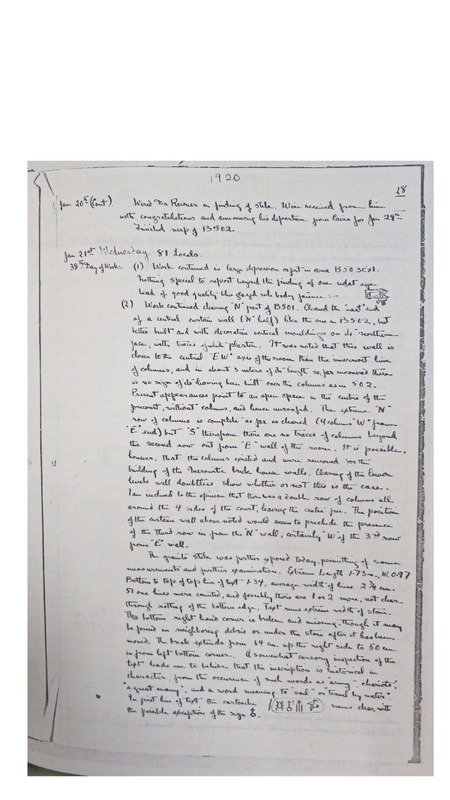 1920
18
Jan 20th (Cont) Wired Dr Reisner re finding of stela. Wire received from him
with congratulations and announcing his departure from Cairo for Jan 29th.
Finished sweep of B502.
Jan 21st Wednesday 81 Locals.
38th Day of Work. (1) Work continued in large depression or pit in area B503
Nothing special to report beyond the finding of one
bead of good quality blue glazed
(2) Work continued clearing "N" part of B501. Cleared the "east" end
of a central curtain wall ("N" half) like the one in B502, but
better built and with decorative vertical mouldings on its northern
face, with traces of white plaster. It was noted that this wall is
closer to the central "E W" axis of the room than the innermost line
of columns, and in about 3 meters of its length so far uncovered there
is no sign of its having been built over the columns as in 502.
Present appearances point to an open space in the centre of the
forecourt, without columns, and hence unroofed. The extreme "N"
row of columns is complete as far as cleared (4 columns "W" from
"E" end) but "S" therefrom there are no traces of columns beyond
the second row out from "E" wall of the room. It is possible,
however, that the columns existed and were removed for the
building of the Meroitic brick house walls. Clearing of the lower
levels will doubtless show whether or not this is the case.
I am inclined to the opinion that there was a double row of columns all
around the 4 sides of the court, leaving the center free. The position
of the curtain wall above noted would seem to preclude the presence
of the third row in from the "N" wall, certainly "W" of the 3rd row
from "E" wall.
The granite stela was further exposed today, permitting of some
measurements and further examination. Extreme Length 1.73 m., W. 0.97
Bottom to top of top line of text 1.34, average width of lines 2 3/4 cm.
51 one lines were counted, and possibly there are 1 or 2 more, not clear
through rotting of the bottom edge. Text runs extreme width of stone.
The bottom right hand corner is broken and missing, though it may
be found in neighboring debris or under the stone after it has been
moved. The break extends from 64 cm. up the right side to 50 cm.
in from left bottom corner. A somewhat cursory inspection of the
text leads me to believe that the inscription is historical in
character, from the occurrence of such words as "army", "chariots",
"a great many", and a word meaning to "sail" or travel by water".
In first line of text the cartouche seems clear, with
the possible exception of the sign